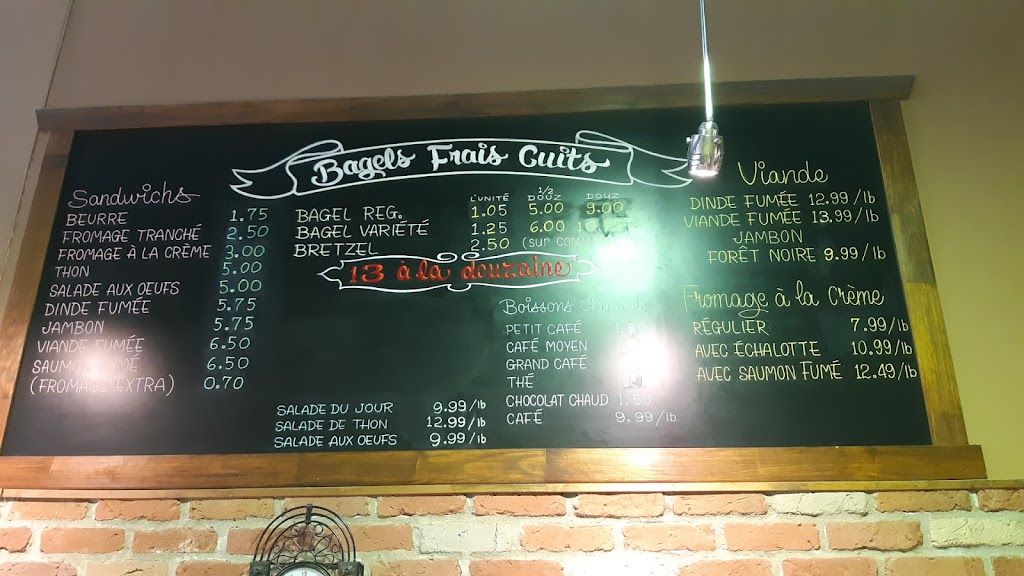 Bagels Frais Cuits
Sandwichs
BEURRE 1.75
FROMAGE TRANCHÉ 2.50
FROMAGE À LA CRÈME 3.00
THON 5.00
SALADE AUX OEUFS 5.00
DINDE FUMÉE 5.75
JAMBON 5.75
VIANDE FUMÉE 6.50
SAUMON FUMÉ 6.50
(FROMAGE EXTRA) 0.70
L'UNITÉ 1/2 DOUZ DOUZ
BAGEL REG. 1.05 5.00 9.00
BAGEL VARIÉTÉ 1.25 6.00
BRETZEL 2.50 (sur
13 à la douzaine
SALADE DU JOUR 9.99/lb
SALADE DE THON 12.99/lb
SALADE AUX OEUFS 9.99/lb
Boissons
PETIT CAFÉ
CAFÉ MOYEN
GRAND CAFÉ
THÉ
CHOCOLAT CHAUD 1.50
CAFÉ 9.99/lb
Viande
DINDE FUMÉE 12.99/lb
VIANDE FUMÉE 13.99/lb
JAMBON
FORÊT NOIRE 9.99/lb
Fromage à la Crème
RÉGULIER 7.99/lb
AVEC ÉCHALOTTE 10.99/lb
AVEC SAUMON FUMÉ 12.49/lb